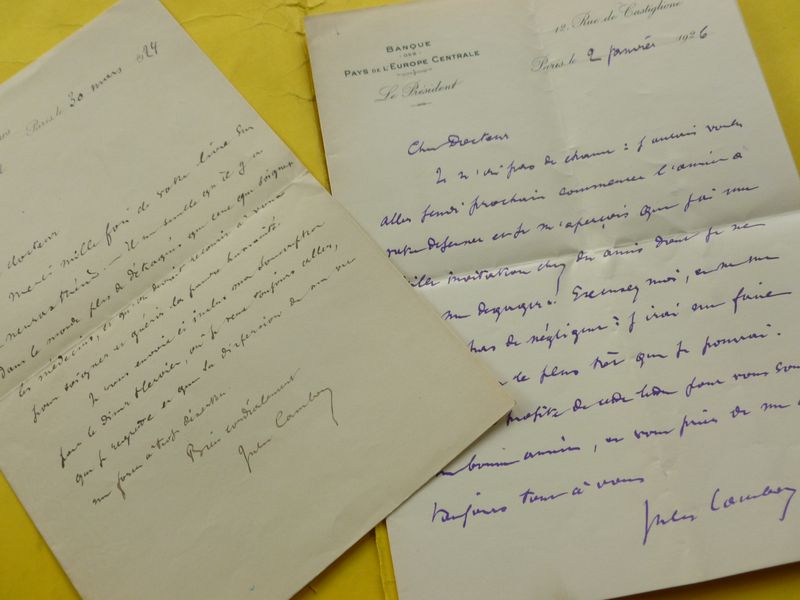 Paris le 30 mars 1924
docteur
Merci mille fois de votre livre sur
neurasthénie. Il me semble qu'il y a
dans le monde plus de détraqués que ceux que soignent
les médecins, et qu'on devrait recourir à
pour soigner et guérir la pauvre humanité.
Je vous envoie ci inclus ma souscription
pour le diner Hervier, où je veux toujours aller,
que je regrette et que la dispersion de ma vie
me force à trop déserter.
Bien cordialement
Jules Cambon
BANQUE
DES
PAYS DE L'EUROPE CENTRALE
Le Président
12, Rue de Castiglione
Paris le 2 janvier 1926
Cher Docteur
Je n'ai pas de chance : j'aurais voulu
aller lundi prochain commencer l'année à
votre déjeuner et je m'aperçois que j'ai une
invitation chez des amis dont je ne
me dégager. Excusez moi, et ne me
pas de négligence : j'irai en faire
le plus tôt que je pourrai.
profite de cette lettre pour vous
bonne année, et vous prier de me
toujours tout à vous
Jules Cambon